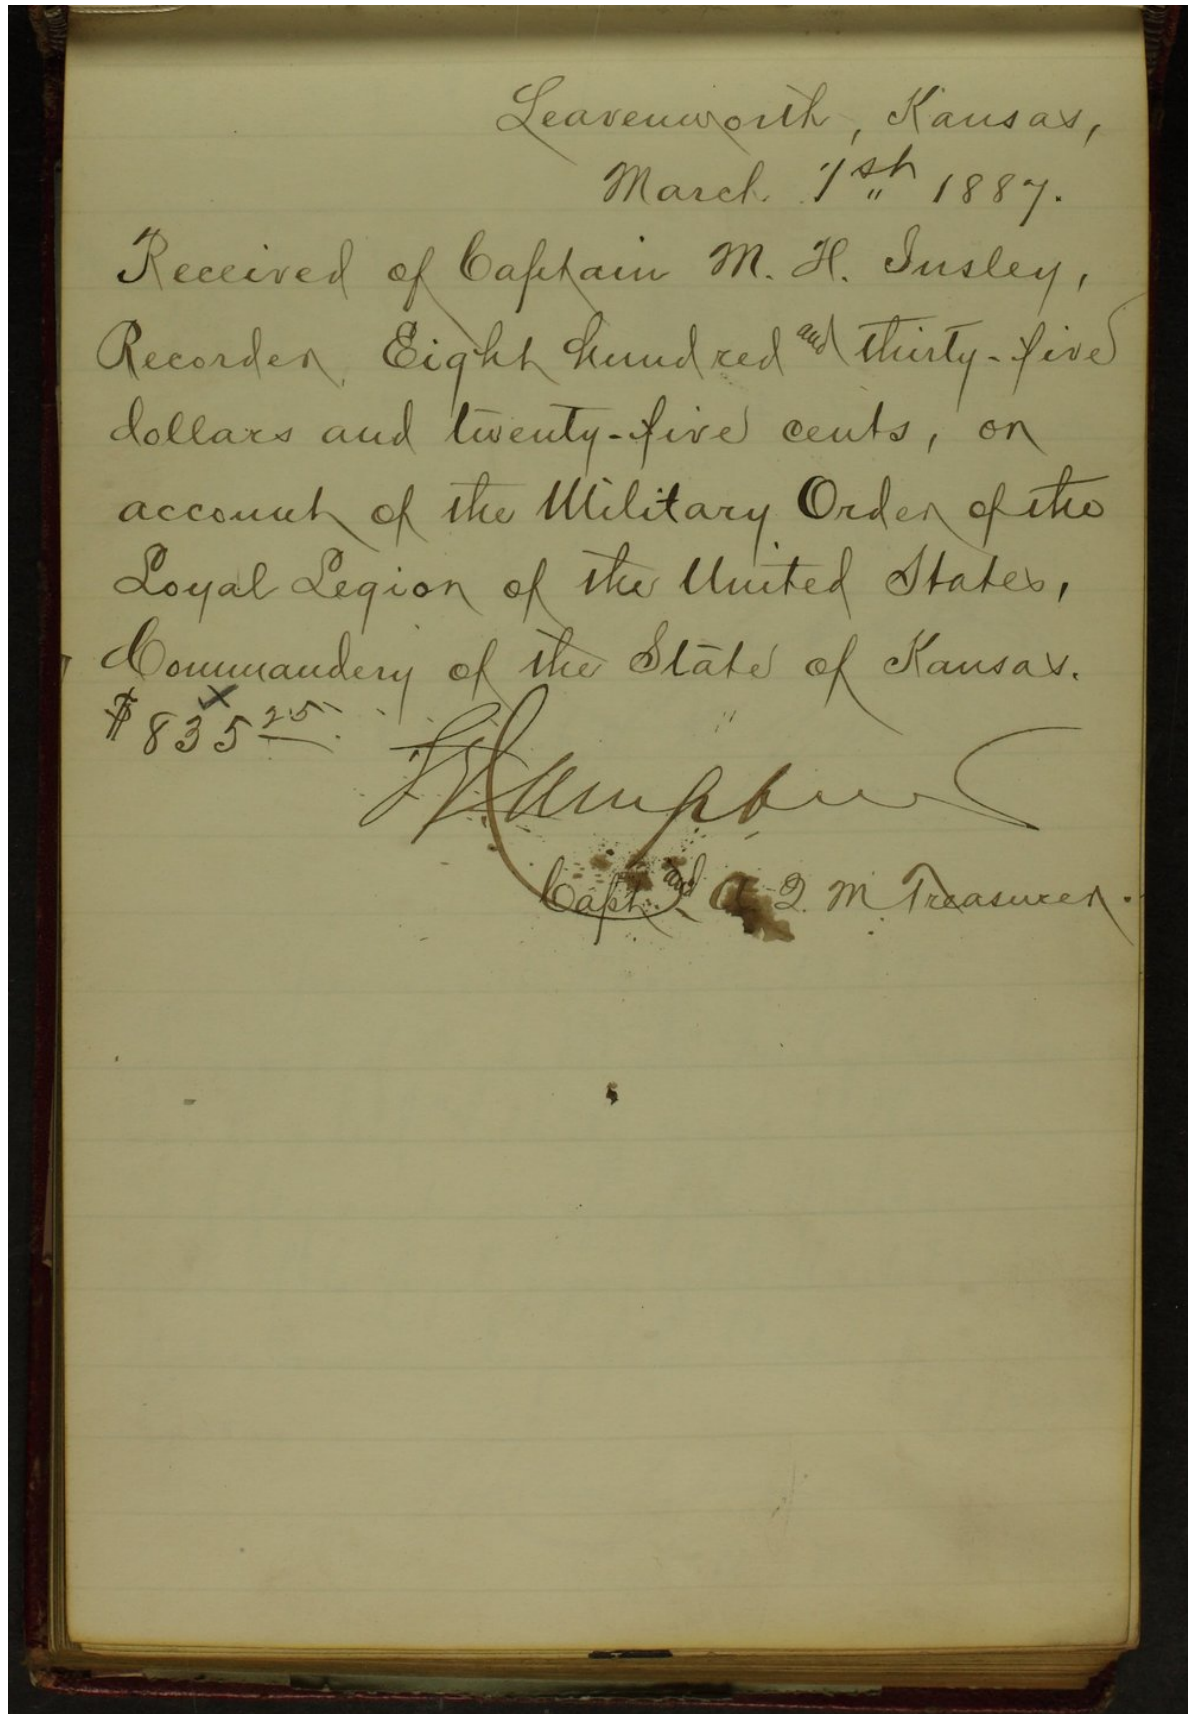 Leavenworth, Kansas,
March 1st 1887.
Received of Captain M. H. Insley,
Recorder, Eight hundred and thirty-five
dollars and twenty-five cents, on
account of the Military Order of the
Loyal Legion of the United States,
Commandery of the State of Kansas.
$835 25
Capt. and A. Q. M. Treasurer.